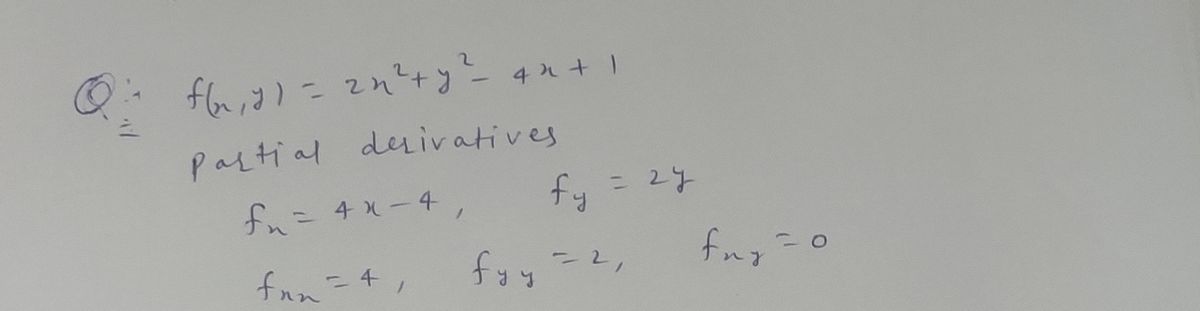 Q:- f(x,y) = 2x²+y²- 4x + 1
Partial derivatives
fx = 4x-4, fy = 2y
fxx = 4, fyy = 2, fxy = 0